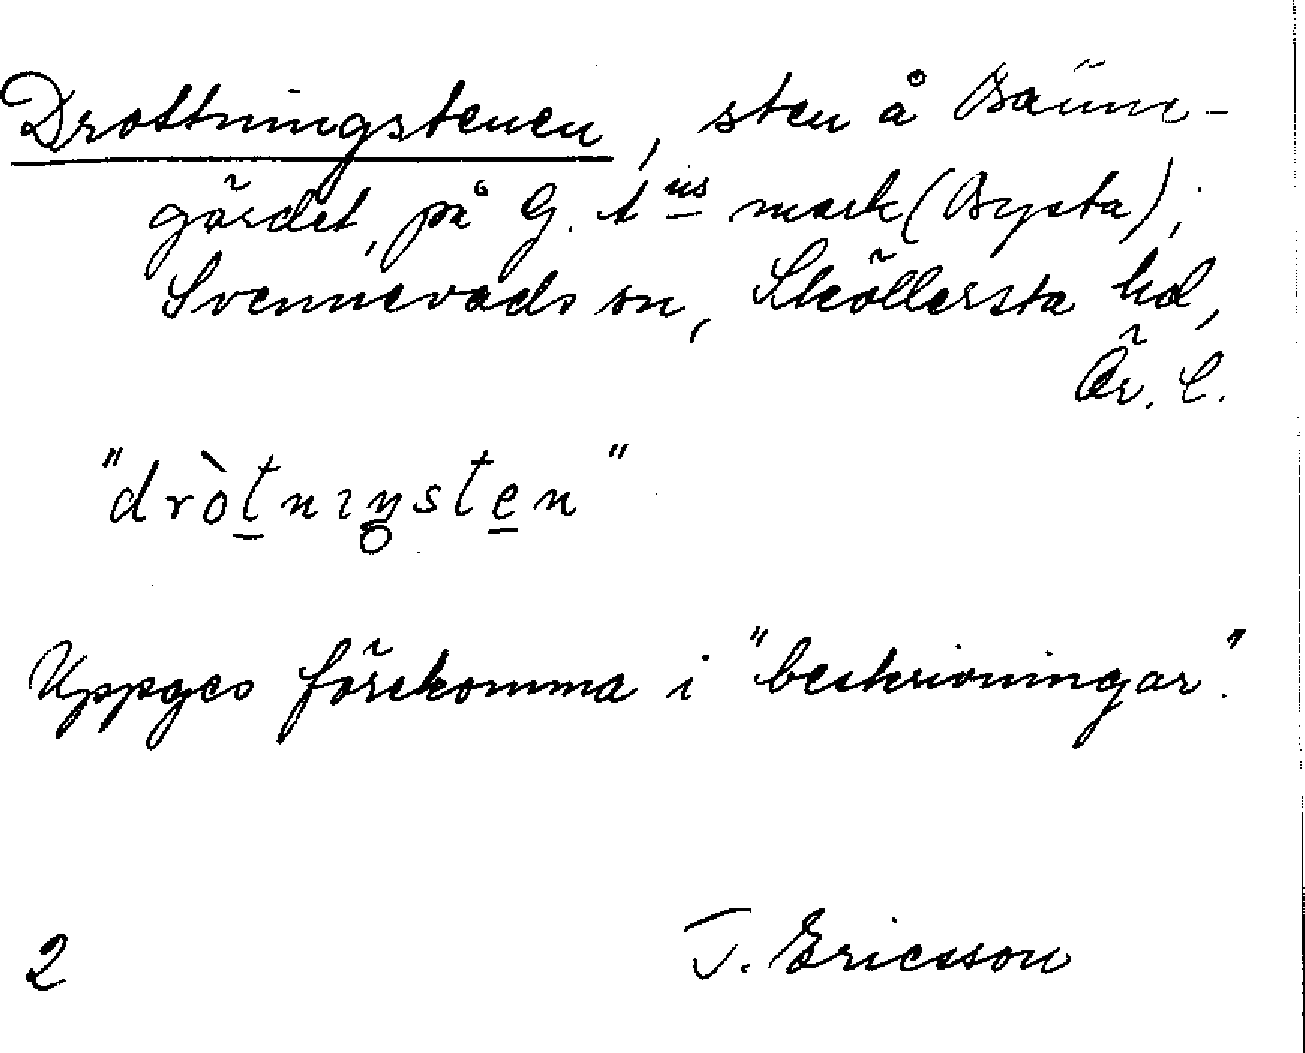 Drottningstenen, sten å
gärdet, på G. tns mark (Bysta);
Svennevads sn, Sköllersta hd,
Ör. l.
"dròtnıŋsten"
Uppges förekomma i "beskrivningar".
2 T. Ericsson